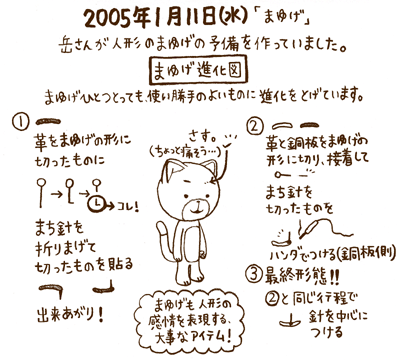 2005年1月11日(水)「まゆげ」
岳さんが人形のまゆげの予備を作っていました。
まゆげ進化図
まゆげひとつとっても、使い勝手のよいものに進化をとげています。
①
革をまゆげの形に
切ったものに
→ → → コレ!
まち針を
折りまげて
切ったものを貼る
出来あがり!
さす。
(ちょっと痛そう…)
まゆげも人形の
感情を表現する、
大事なアイテム!
②
革と銅板をまゆげの
形にきり、接着して
まち針を
切ったものを
ハンダでつける(銅板側)
③最終形態!!
②と同じ行程で
針を中心に
つける